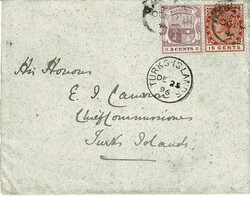 3 CENTS
15 CENTS
TURKS-ISLANDS
DE 25
95
His Honour
E. J. Cameron
Chief Commissioner
Turks Islands.